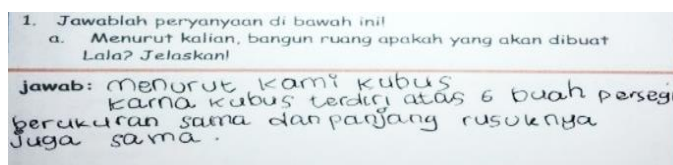 1. Jawablah peryanyaan di bawah ini!
a. Menurut kalian, bangun ruang apakah yang akan dibuat
Lala? Jelaskan!
jawab: menurut kami kubus
karna kubus terdiri atas 6 buah persegi
berukuran sama dan panjang rusuknya
juga sama.